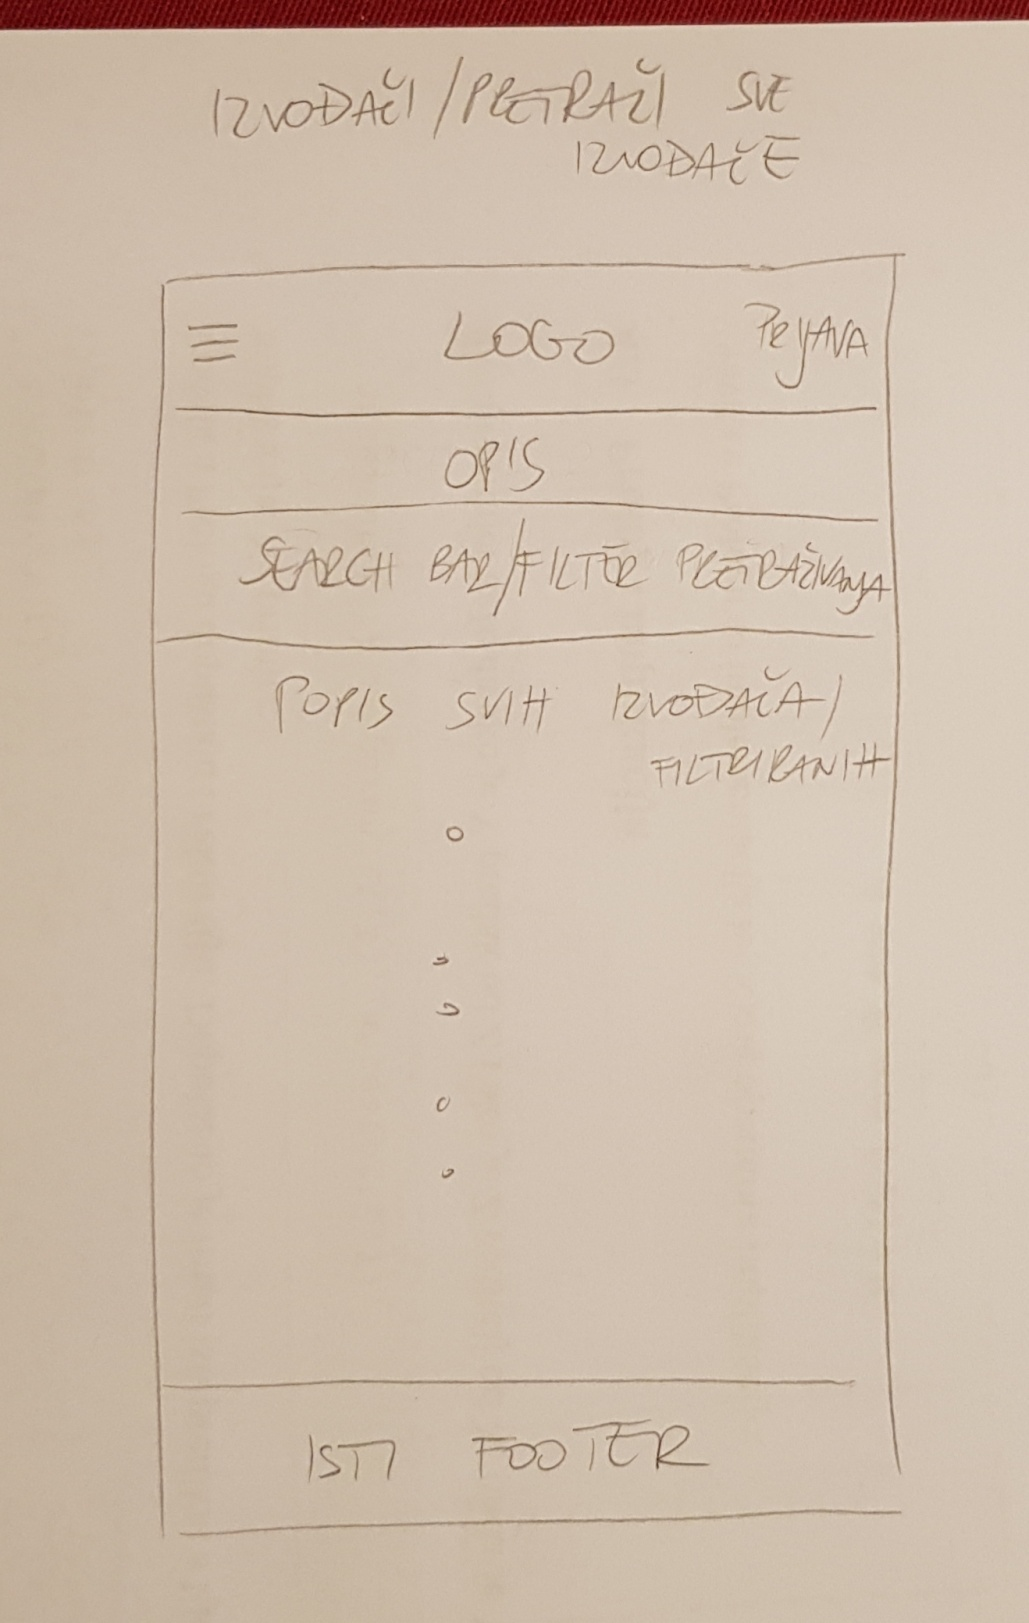 IZVOĐAČI/PRETRAŽI SVE
IZVOĐAČE
LOGO PRIJAVA
OPIS
SEARCH BAR/FILTER PRETRAŽIVANJA
POPIS SVIH IZVOĐAČA/
FILTRIRANIH
ISTI FOOTER